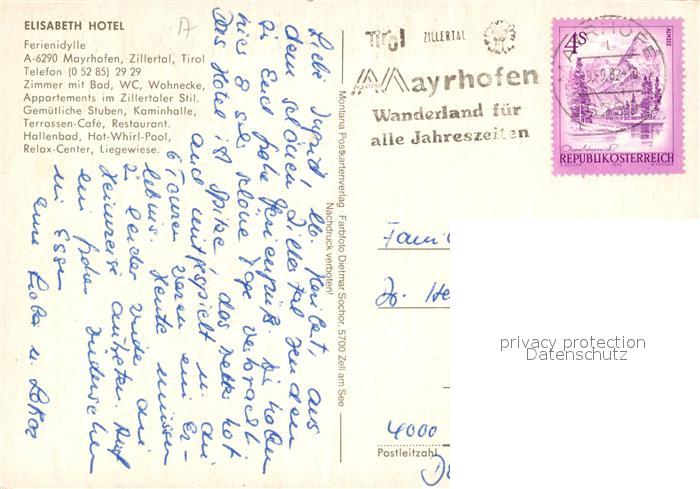 ELISABETH HOTEL
Ferienidylle
A-6290 Mayrhofen, Zillertal, Tirol
Telefon (0 52 85) 29 29
Zimmer mit Bad, WC, Wohnecke,
Appartements im Zillertaler Stil.
Gemütliche Stuben, Kaminhalle,
Terrassen-Café, Restaurant.
Hallenbad, Hot-Whirl-Pool,
Relax-Center, Liegewiese.
Tirol ZILLERTAL
Mayrhofen
Wanderland für
alle Jahreszeiten
4S
ALMSEE
Oberösterreich
REPUBLIK ÖSTERREICH
Liebe Ingrid, lb. Heribert, aus
dem schönen Zillertal senden
wir Euch frohe Feriengrüße. Wir haben
hier 8 schöne Tage verbracht.
Das Hotel ist Spitze, das Wetter hat
auch mitgespielt u. die
6 Touren waren ein Er-
lebnis. Heute müssen
wir leider wieder die
Heimreise antreten. Auf
ein frohes Wiedersehen
in Essen
Eure
Montana Postkartenverlag · Farbfoto Dietmar Sochor, 5700 Zell am See
Nachdruck verboten!
Famil
Dr. He
privacy protection
Datenschutz
4000
Postleitzahl